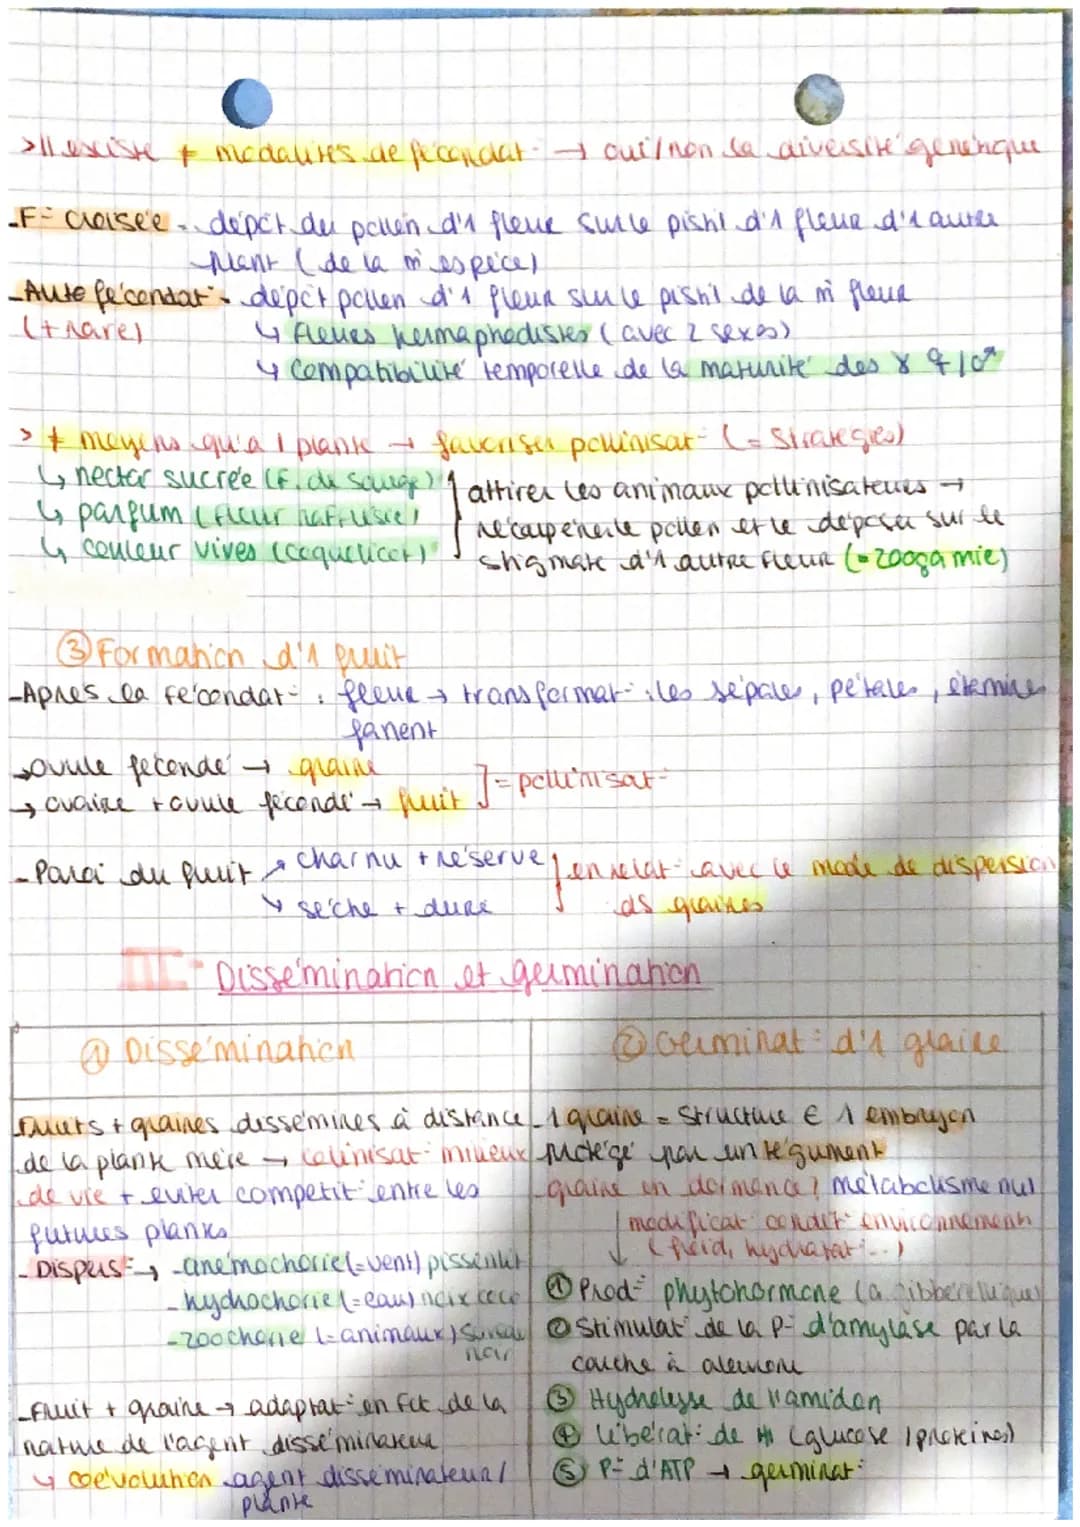 > Il existe ≠ modalités de fécondat° → oui/non la diversité génétique
- F° croisée - dépôt du pollen d'1 fleur sur le pistil d'1 fleur d'1 autre
plant (de la m̂ espèce)
- Autofécondat° - dépôt pollen d'1 fleur sur le pistil de la m̂ fleur
(+ rare)
↳ fleurs hermaphodistes (avec 2 sexes)
↳ Compatibilité temporelle de la maturité des ɣ ♀/♂
> ≠ moyens qu'a 1 plante → favoriser pollinisat° (= stratégies)
↳ nectar sucrée (F. de sauge)
↳ parfum (fleur
↳ couleur vives (coquelicot)
attirer les animaux pollinisateurs →
récupérer le pollen et le déposer sur le
stigmate d'1 autre fleur (= zoogamie)
③ Formation d'1 fruit
- Après la fécondat° : fleur → transformat° : les sépales, pétales, étamines
fanent
→ ovule fécondé → graine
→ ovaire + ovule fécondé → fruit
] = pollinisat°
- Paroi du fruit
↗ charnu + réserve
↘ sèche + dure
en relat° avec le mode de dispersion
ds graines
III - Dissémination et germination
① Dissémination
Fruits + graines disséminés à distance
de la plante mère → colinisat° milieux
de vie + éviter compétit° entre les
futures plantes
- Dispers° → - anémochorie (= vent) pissenlit
- hydrochorie (= eau) noix coco
- zoochorie (= animaux) Sureau
noir
- Fruit + graine → adaptat° en fct de la
nature de l'agent disséminateur
↳ coévolution agent disséminateur /
plante
② Germinat° d'1 graine
1 graine = structure ∈ 1 embryon
protégé par un tégument
graine en dormance ? métabolisme nul
↓ modificat° condit° environnement
(froid, hydratat°...)
① Prod° phytohormone (a. gibbérellique)
② Stimulat° de la P° d'amylase par la
couche à aleurone
③ Hydrolyse de l'amidon
④ libérat° de (glucose / protéines)
⑤ P° d'ATP → germinat°